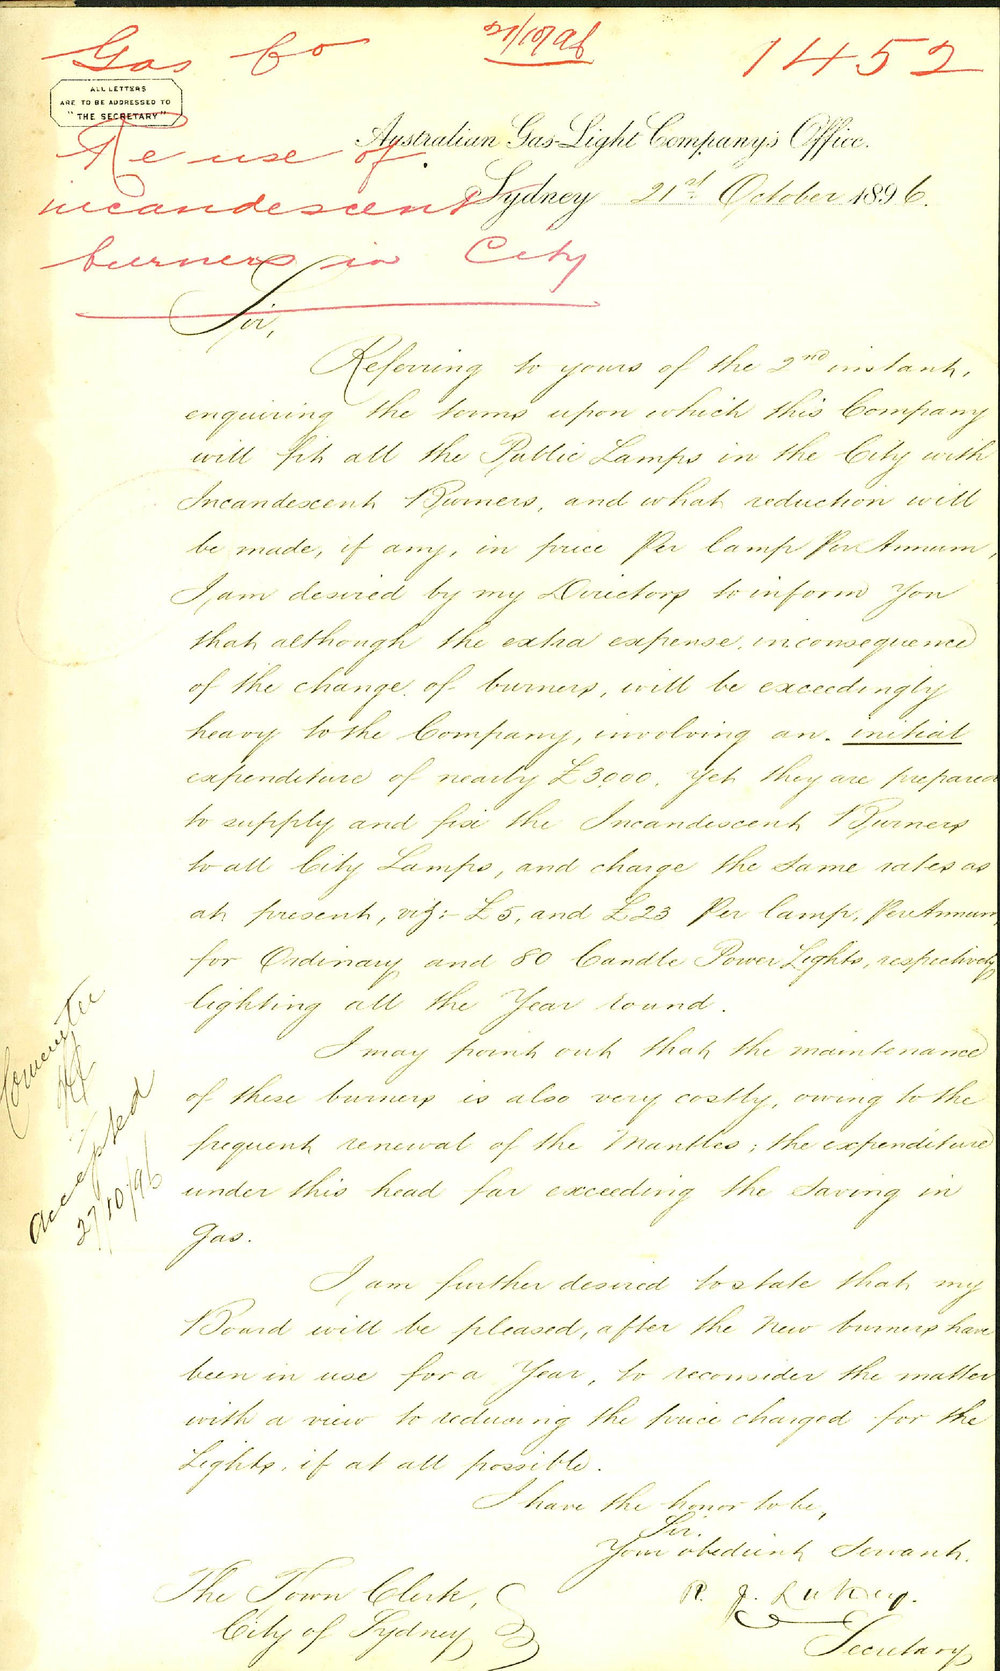 Gas Co
21/10/96
1452
ALL LETTERS
ARE TO BE ADDRESSED TO
"THE SECRETARY"
Re use of
incandescent
burners in City
Australian Gas-Light Company's Office.
Sydney 21st October 1896.
Sir,
Referring to yours of the 2nd instant,
enquiring the terms upon which this Company
will fit all the Public Lamps in the City with
Incandescent Burners, and what reduction will
be made, if any, in price Per Lamp Per Annum,
I am desired by my Directors to inform You
that although the extra expense, in consequence
of the change of burners, will be exceedingly
heavy to the Company, involving an initial
expenditure of nearly £3000, yet they are prepared
to supply and fix the Incandescent Burners
to all City Lamps, and charge the same rates as
at present, viz:- £5, and £23 Per lamp, Per Annum,
for Ordinary and 80 Candle Power Lights, respectively,
lighting all the Year round.
I may point out that the maintenance
of these burners is also very costly, owing to the
frequent renewal of the Mantles; the expenditure
under this head far exceeding the saving in
Gas.
I am further desired to state that my
Board will be pleased, after the New burners have
been in use for a Year, to reconsider the matter
with a view to reducing the price charged for the
Lights, if at all possible.
I have the honor to be,
Sir,
Your obedient Servant,
R. J.
Secretary
The Town Clerk,
City of Sydney
Committee
Accepted
27/10/96